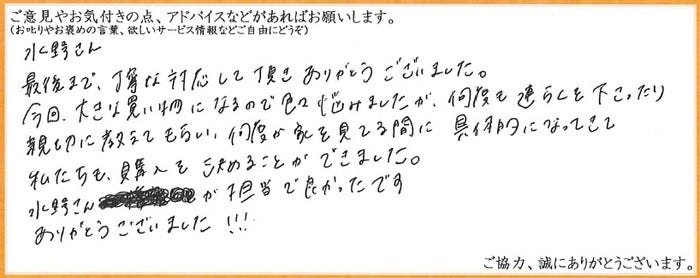 ご意見やお気付きの点、アドバイスなどがあればお願いします。
(お叱りやお褒めの言葉、欲しいサービス情報などご自由にどうぞ)
水野さん
最後まで、丁寧な対応して頂きありがとうございました。
今回、大きな買い物になるので色々悩みましたが、何度も連らくを下さったり
親切に教えてもらい、何度か家を見てる間に具体的になってきて
私たちも、購入を決めることができました。
水野さんが担当で良かったです
ありがとうございました!!!
ご協力、誠にありがとうございます。